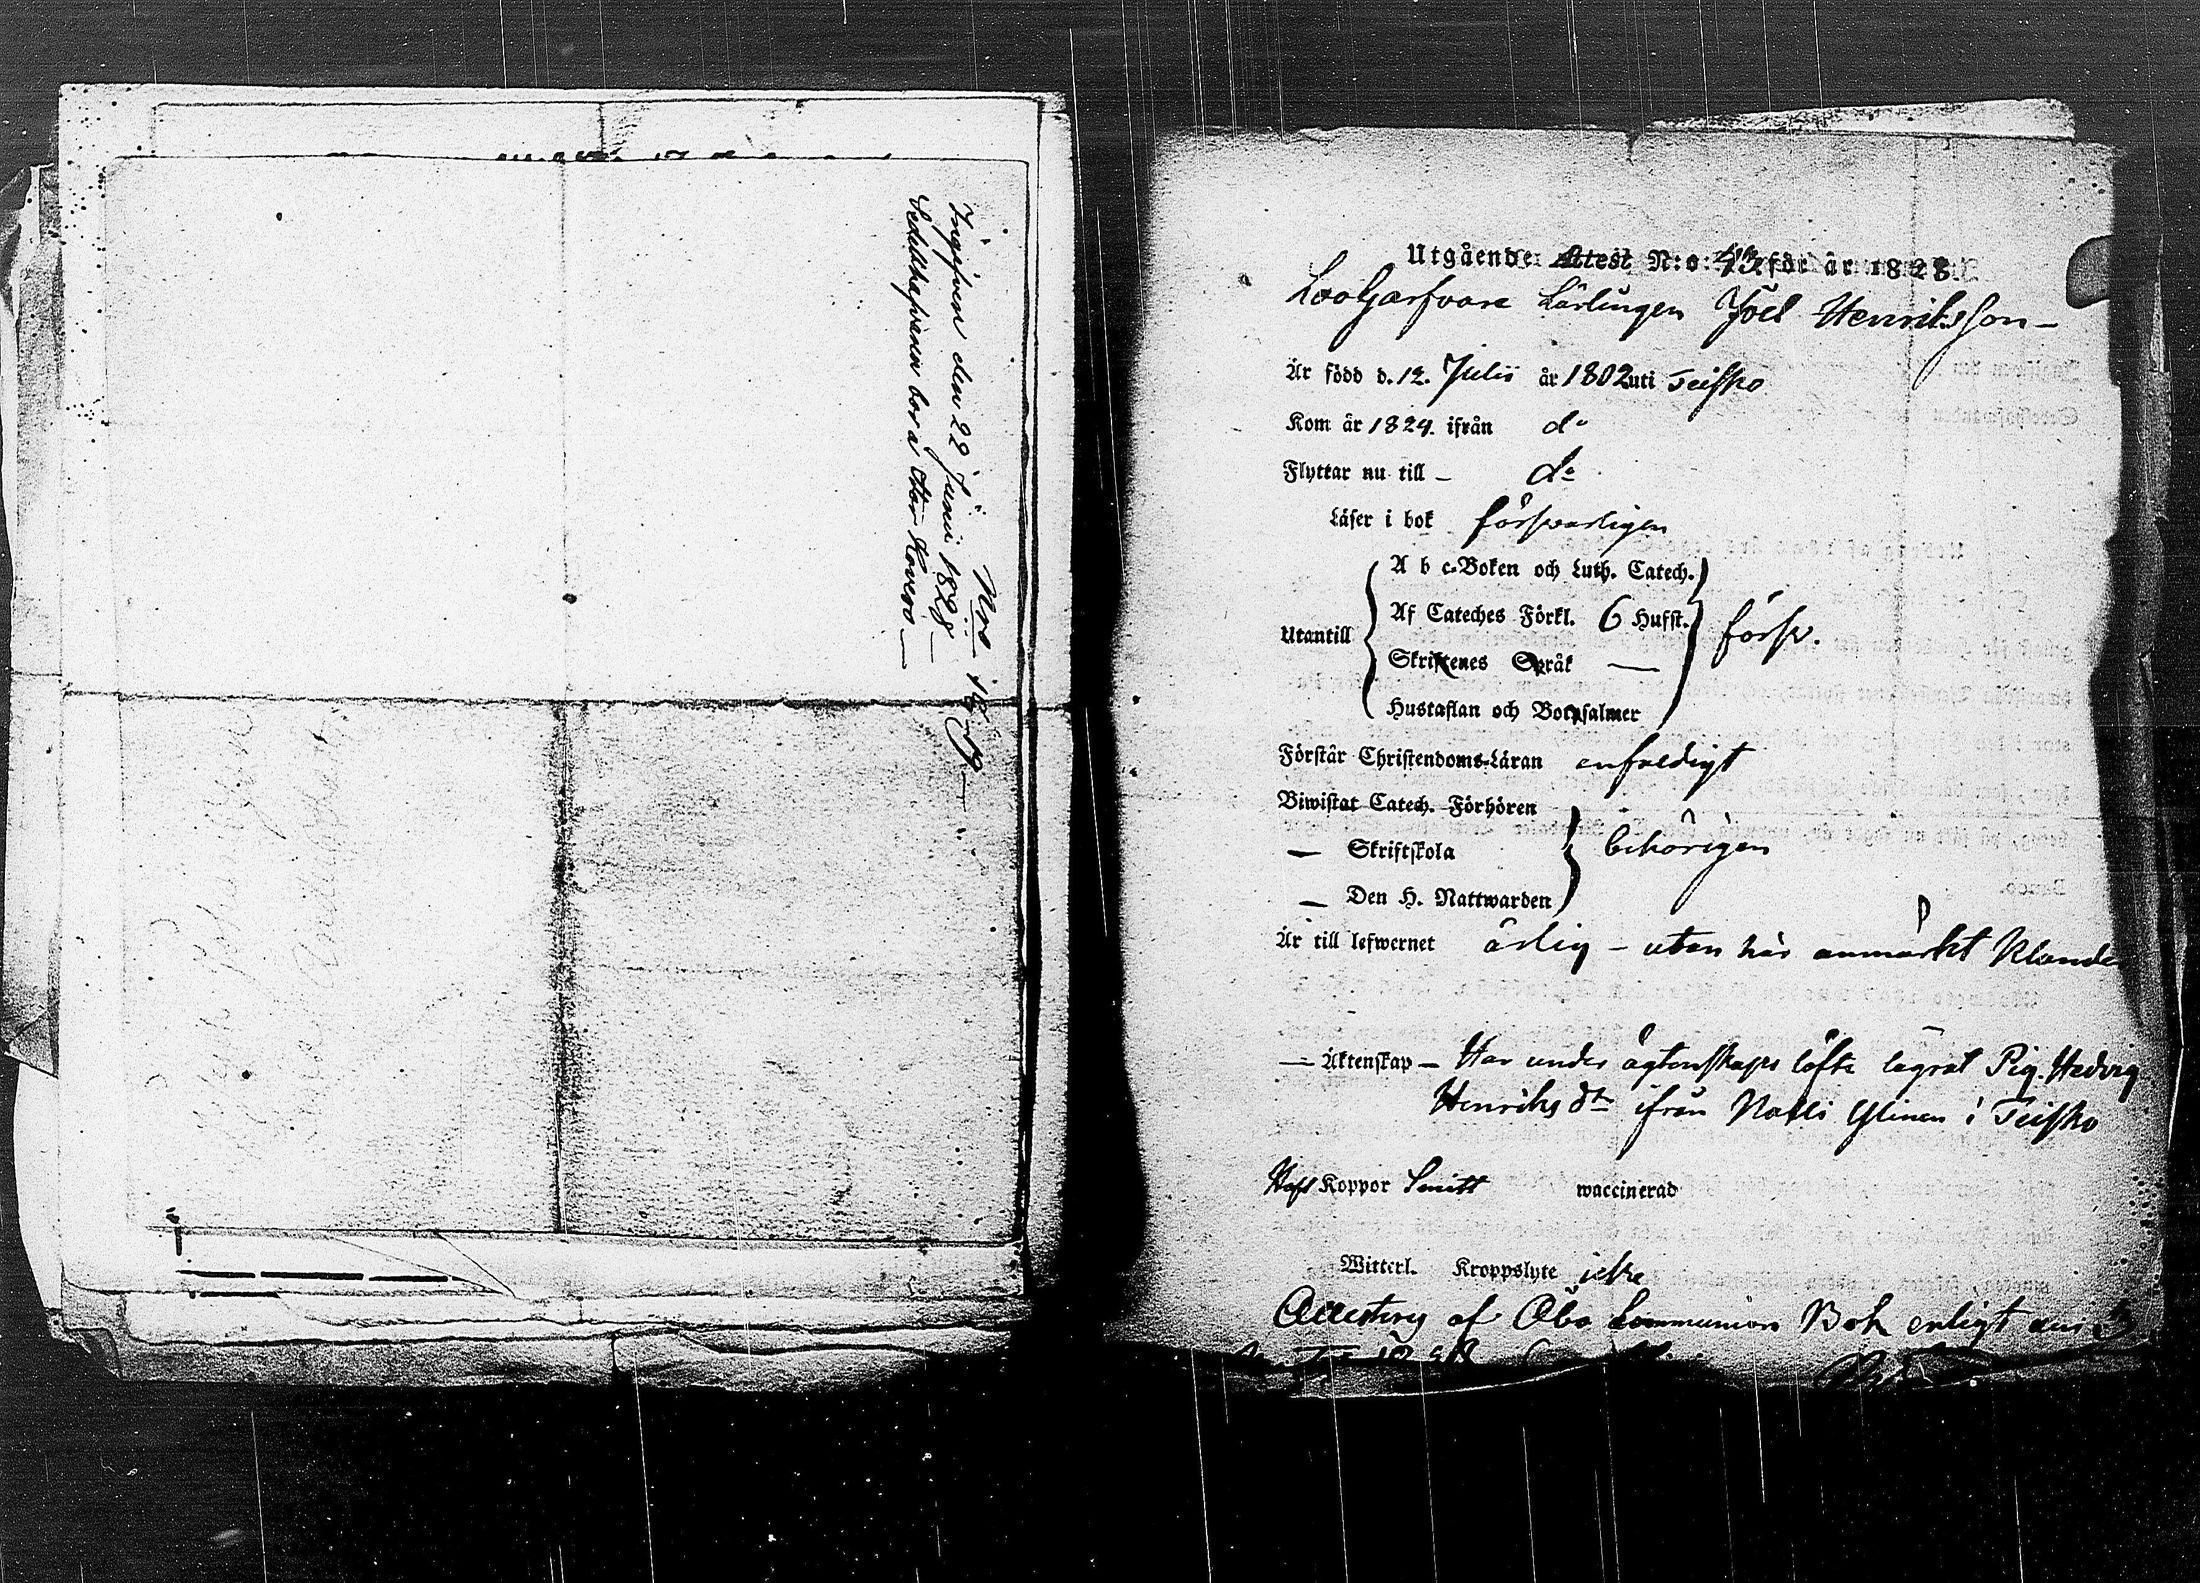 Nro 18
Ingifven den 22 Junii 1828
Sedelhafvaren bor å Koveroi
Utgående Attest N:o 43 för år 1828.
Logarfvare Lärlingen Joel Henriksson
Är född d. 12. Julii år 1802 uti Teisko
Kom år 1824. ifrån do
Flyttar nu till do
Läser i bok försvarligen
Utantill
A b c-Boken och Luth. Catech.
Af Cateches Förkl. 6 Hufst.
försv.
Skriftenes Språk —
Hustaflan och Botpsalmer
Förstår Christendoms-Läran enfaldigt
Biwistat Catech. Förhören
— Skriftskola
behörigen
— Den H. Nattwarden
Är till lefwernet ärlig – utan här anmärkt Klander
— Äktenskap – Har under ägtenskaps löfte lägrat Pig. Hedvig
Henriks dtr ifrån Ylinen i Teisko
Haft Koppor Smitt waccinerad
Witterl. Kroppslyte icke
af Åbo Communion Bok enligt